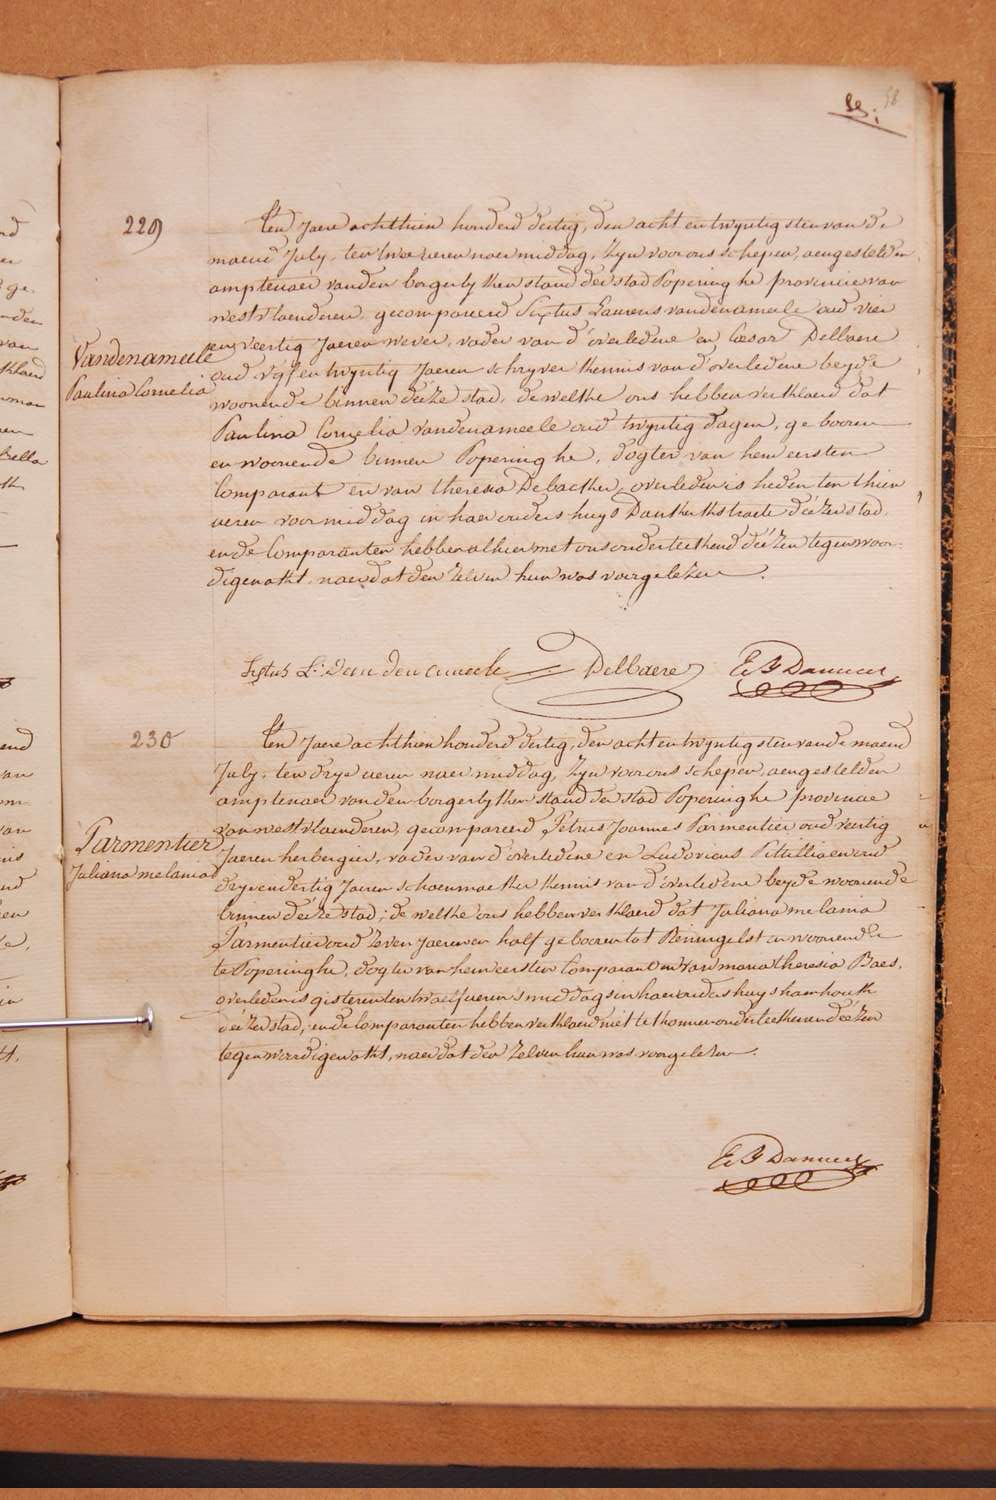 58
229
Vandenameele
Paulina Cornelia
Ten Jaere achthien honderd dertig, den acht en twyntigsten van de
maend July, ten twee ueren naer middag, zyn voor ons schepen, aengestelden
amptenaer van den borgerlyken stand der stad Poperinghe provincie van
westvlaenderen, gecompareerd Sixtus Laurens vandenameele oud vier
en veertig Jaeren wever, vader van d'overledene en Cesar Delbaere
oud vyf en twyntig Jaeren schryver kennis van d'overledene beyde
woonende binnen déeze stad, dewelke ons hebben verklaerd dat
Paulina Cornelia vandenameele oud twyntig dagen, gebooren
en woonende binnen Poperinghe, dogter van hem eersten
Comparant en van theresia Debacker, overleden is heden ten thien
ueren voormiddag in haer ouders huys Dankerkstraete déézer stad,
en de Comparanten hebben alhier met ons onderteekend déézen tegenwoor-
digen akt, naer dat den zelven hun was voorgelezen.
Sixtus L: Van den ameele Delbaere
230
Parmentier
Juliana melania
Ten Jaere achthien honderd dertig, den acht en twyntigsten van de maend
July, ten drye ueren naer middag, zyn voor ons schepen, aengestelden
amptenaer van den borgerlyken stand der stad Poperinghe provincie
van westvlaenderen, gecompareerd Petrus Joannes Parmentier oud veertig
Jaeren herbergier, vader van d'overledene en Ludovicus Pittillioen oud
dryendertig Jaeren schoenmaeker kennis van d'overledene beyde woonende
binnen déeze stad; de welke ons hebben verklaerd dat Juliana melania
Parmentier oud zeven Jaeren en half gebooren tot Reningelst en woonende
te Poperinghe, dogter van hem eersten Comparant en van maria theresia Baes,
overleden is gisteren ten twaelf ueren 's middags in haer ouders huys hamhouck
déézer stad, en de Comparanten hebben verklaerd niet te konnen onderteekenen déézen
tegenwoordigen akt, naer dat den zelven hun was voorgelezen.